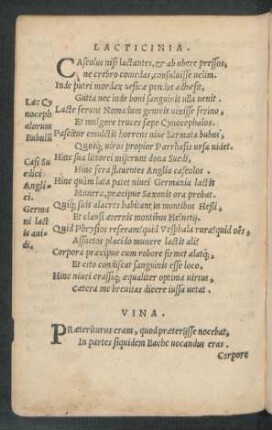 LACTICINIA.
CAseolus nisi lactantes, & ab ubere pressos,
ne crebro comedas, consuluisse uelim.
Inde putri mordax uesica pen ius adhæsit,
Gutta nec inde boni sanguinis ulla uenit.
Lacte ferunt Nomadum gentem uixisse ferino,
Et mulgere truces sæpe Cynocephalos.
Pascitur emulctis horrens niue Sarmata bubus,
Quoq; uiros propior Parrhasis ursa uidet.
Hinc sua littorei miserunt dona Suedi,
Hinc fera flauentes Anglia caseolos
Hinc quàm lata patet niuei Germania lactis
Munera, præcipue Saxonis ora probat.
Quiq; suis alacres habitant in montibus
Et clausi æternis montibus Heluetij.
Quid Phrysios referam? quid rura? quid oẽs,
Assuetos placido munere lactis ali?
Corpora præcipue cum robore firmet alatq;,
Et cito conuiscat sanguinis esse loco,
Hinc niuei crassiq; æqualiter optima uirtus,
Cætera me breuitas dicere iussa uetat.
Lac Cy
nocepha
alorum
Bubulũ
Casi Su
edici
Angli
ci.
Germa
ni lact
is aui
di.
VINA.
PRæteriturus eram, quod præterijsse nocebat,
In partes siquidem Bache uocandus eras.
Corpore